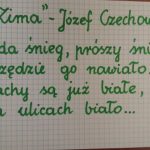 Zima" - Józef Czechow
da śnieg, prószy śni
zędzie go nawiało.
achy są już białe,
ulicach biało...